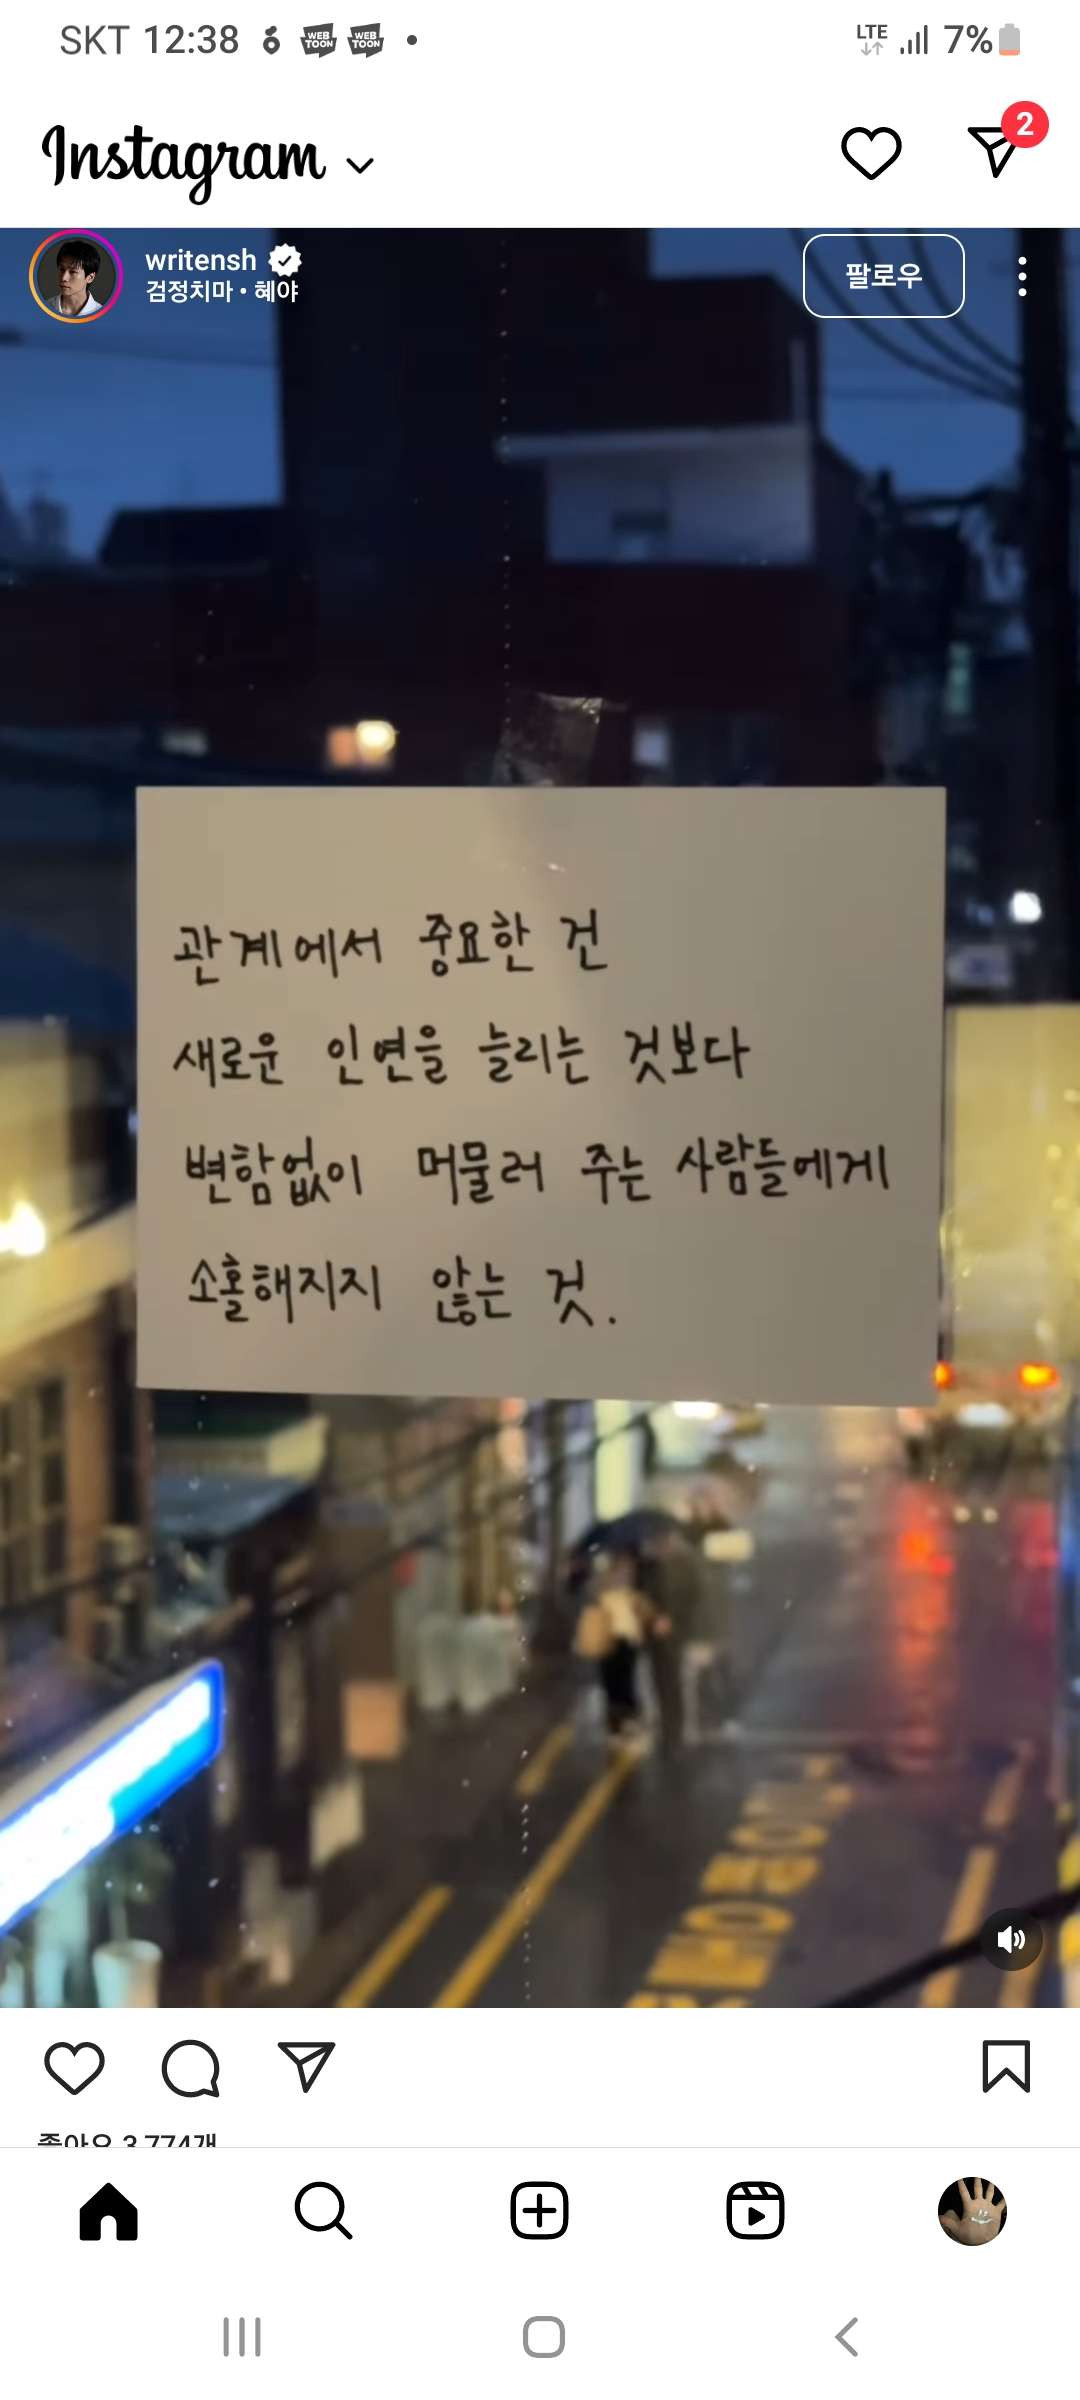 SKT 12:38
WEB TOON WEB TOON
LTE 7%
Instagram
2
writensh
검정치마 • 혜야
팔로우
관계에서 중요한 건
새로운 인연을 늘리는 것보다
변함없이 머물러 주는 사람들에게
소홀해지지 않는 것.
좋아요 3,774개